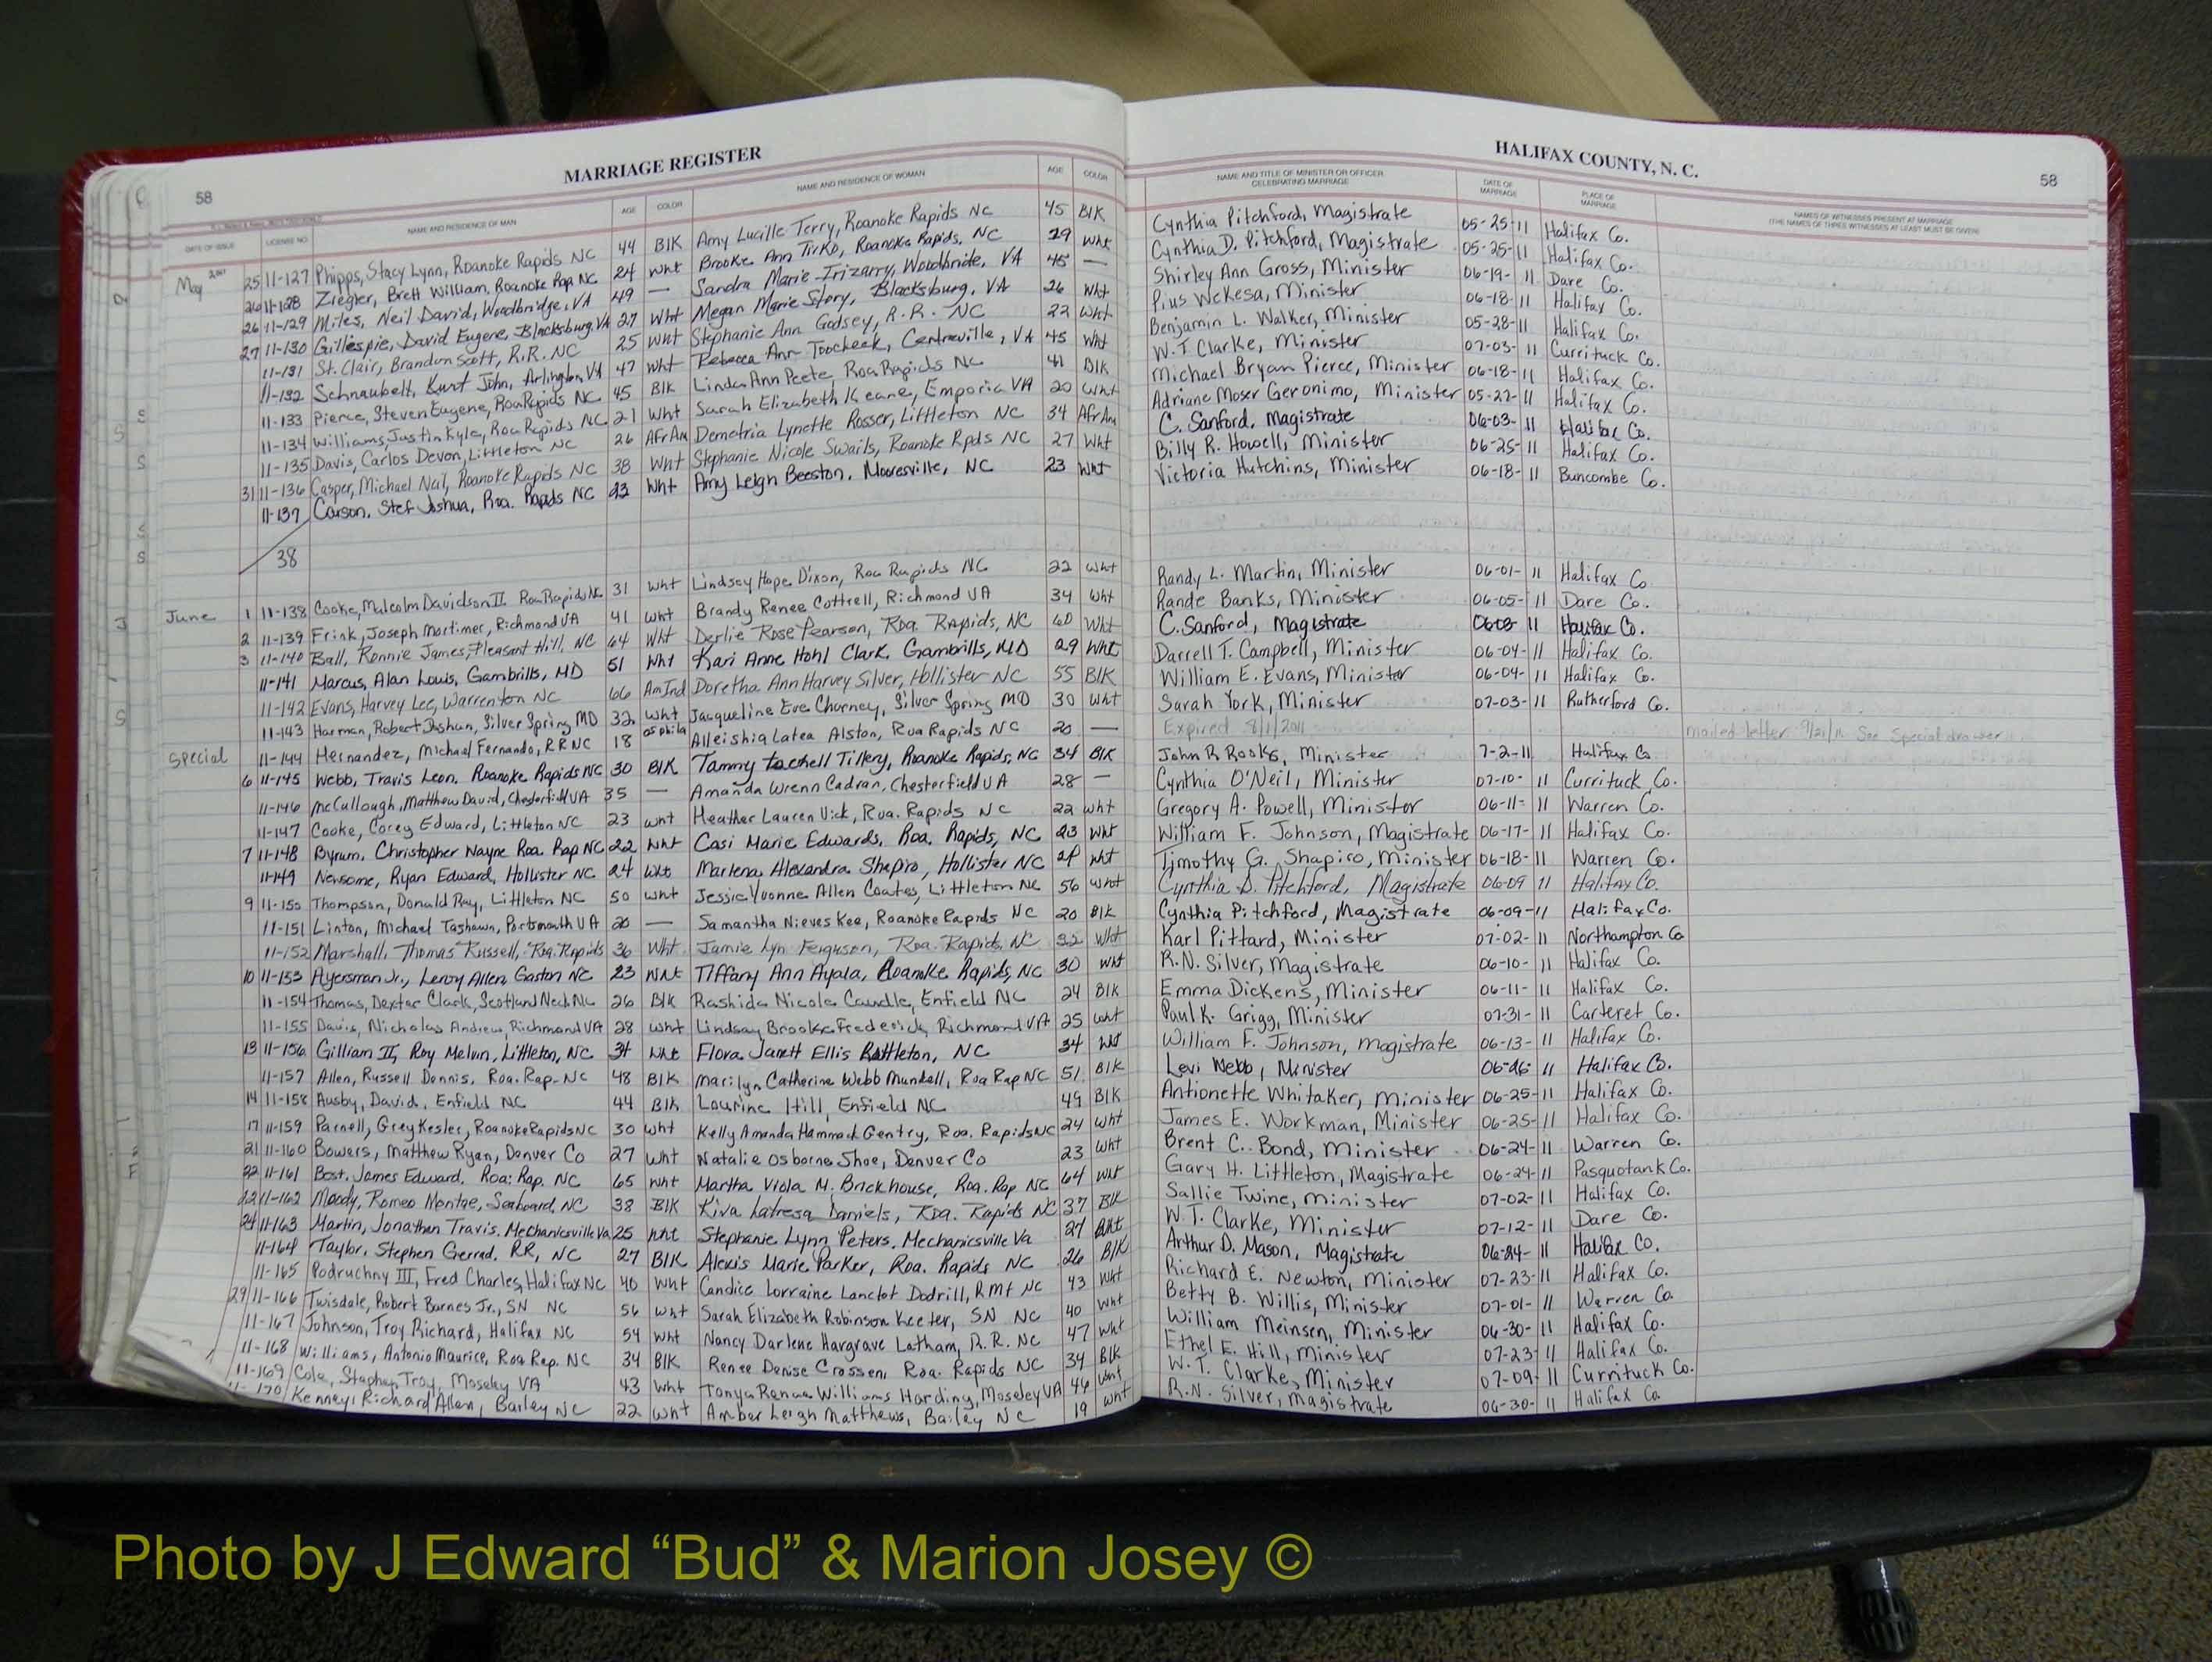 MARRIAGE REGISTER
HALIFAX COUNTY, N. C.
58
58
DATE OF ISSUE LICENSE NO. NAME AND RESIDENCE OF MAN AGE COLOR NAME AND RESIDENCE OF WOMAN AGE COLOR NAME AND TITLE OF MINISTER OR OFFICER CELEBRATING MARRIAGE DATE OF MARRIAGE PLACE OF MARRIAGE NAMES OF WITNESSES PRESENT AT MARRIAGE (THE NAMES OF THREE WITNESSES AT LEAST MUST BE GIVEN)
May 25 11-127 Phipps, Stacy Lynn, Roanoke Rapids NC 44 Blk Amy Lucille Terry, Roanoke Rapids NC 45 Blk Cynthia Pitchford, Magistrate 05-25-11 Halifax Co.
26 11-128 Ziegler, Brett William, Roanoke Rap NC 24 Wht Brooke Ann Tirko, Roanoke Rapids, NC 29 Wht Cynthia D. Pitchford, Magistrate 05-25-11 Halifax Co.
26 11-129 Miles, Neil David, Woodbridge, VA 49 — Sandra Marie Irizarry, Woodbride, VA 45 — Shirley Ann Gross, Minister 06-19-11 Dare Co.
27 11-130 Gillespie, David Eugene, Blacksburg, VA 27 Wht Megan Marie Story, Blacksburg, VA 26 Wht Pius Wekesa, Minister 06-18-11 Halifax Co.
11-131 St. Clair, Brandon Scott, R.R. NC 25 Wht Stephanie Ann Godsey, R.R. NC 22 Wht Benjamin L. Walker, Minister 05-28-11 Halifax Co.
11-132 Schnaubelt, Kurt John, Arlington, VA 47 Wht Rebecca Ann Toocheck, Centreville, VA 45 Wht W.T Clarke, Minister 07-03-11 Currituck Co.
11-133 Pierce, Steven Eugene, Roa Rapids NC 45 Blk Linda Ann Peete, Roa Rapids NC 41 Blk Michael Bryan Pierce, Minister 06-18-11 Halifax Co.
11-134 Williams, Justin Kyle, Roa Rapids NC 21 Wht Sarah Elizabeth Keane, Emporia VA 20 Wht Adriane Moser Geronimo, Minister 05-27-11 Halifax Co.
11-135 Davis, Carlos Devon, Littleton NC 26 AfrAm Demetria Lynette Rosser, Littleton NC 34 AfrAm C. Sanford, Magistrate 06-03-11 Halifax Co.
31 11-136 Casper, Michael Neil, Roanoke Rapids NC 38 Wht Stephanie Nicole Swails, Roanoke Rpds NC 27 Wht Billy R. Howell, Minister 06-25-11 Halifax Co.
11-137 Carson, Stef Joshua, Roa. Rapids NC 23 Wht Amy Leigh Beeston, Mooresville, NC 23 Wht Victoria Hutchins, Minister 06-18-11 Buncombe Co.
38
June 1 11-138 Cooke, Malcolm Davidson II Roa Rapids NC 31 Wht Lindsey Hope Dixon, Roa Rapids NC 22 Wht Randy L. Martin, Minister 06-01-11 Halifax Co
2 11-139 Frink, Joseph Mortimer, Richmond VA 41 Wht Brandy Renee Cottrell, Richmond VA 34 Wht Rande Banks, Minister 06-05-11 Dare Co.
3 11-140 Ball, Ronnie James, Pleasant Hill, NC 64 Wht Derlie Rose Pearson, Roa. Rapids, NC 60 Wht C. Sanford, Magistrate 06-03 11 Halifax Co.
11-141 Marcus, Alan Louis, Gambrills, MD 51 Wht Kari Anne Hohl Clark, Gambrills, MD 29 Wht Darrell T. Campbell, Minister 06-04-11 Halifax Co.
11-142 Evans, Harvey Lee, Warrenton NC 66 AmInd Doretha Ann Harvey Silver, Hollister NC 55 Blk William E. Evans, Minister 06-04-11 Halifax Co.
11-143 Harman, Robert Joshua, Silver Spring MD 32 Wht Jacqueline Eve Chorney, Silver Spring MD 30 Wht Sarah York, Minister 07-03-11 Rutherford Co.
Special 11-144 Hernandez, Michael Fernando, RR NC 18 Alleishia Latea Alston, Roa Rapids NC 20 — Expired 8/1/2011 mailed letter 9/21/11 See Special drawer
6 11-145 Webb, Travis Leon, Roanoke Rapids NC 30 Blk Tammy Tillery, Roanoke Rapids, NC 34 Blk John R Rooks, Minister 7-2-11 Halifax Co
11-146 McCullough, Matthew David, Chesterfield VA 35 — Amanda Wrenn Cadran, Chesterfield VA 28 — Cynthia O'Neil, Minister 07-10-11 Currituck Co.
11-147 Cooke, Corey Edward, Littleton NC 23 Wht Heather Lauren Vick, Roa. Rapids NC 22 Wht Gregory A. Powell, Minister 06-11-11 Warren Co.
7 11-148 Byrum, Christopher Nayne Roa. Rap NC 22 Wht Casi Marie Edwards, Roa. Rapids, NC 23 Wht William F. Johnson, Magistrate 06-17-11 Halifax Co.
11-149 Newsome, Ryan Edward, Hollister NC 24 Wht Marlena Alexandra Shapiro, Hollister NC Wht Timothy G. Shapiro, Minister 06-18-11 Warren Co.
9 11-150 Thompson, Donald Ray, Littleton NC 50 Wht Jessie Yvonne Allen Coates, Littleton NC 56 Wht Cynthia D. Pitchford, Magistrate 06-09 11 Halifax Co.
11-151 Linton, Michael Tashawn, Portsmouth VA 20 — Samantha Nieves Kee, Roanoke Rapids NC 20 Blk Cynthia Pitchford, Magistrate 06-09-11 Halifax Co.
11-152 Marshall, Thomas Russell, Roa. Rapids 36 Wht Jamie Lyn Ferguson, Roa. Rapids, NC 32 Wht Karl Pittard, Minister 07-02-11 Northampton Co
10 11-153 Ayersman Jr., Leroy Allen Gaston NC 23 Wht Tiffany Ann Ayala, Roanoke Rapids, NC 30 Wht R.N. Silver, Magistrate 06-10-11 Halifax Co.
11-154 Thomas, Dexter Clark, Scotland Neck NC 26 Blk Rashida Nicole Caudle, Enfield NC 24 Blk Emma Dickens, Minister 06-11-11 Halifax Co.
11-155 Davis, Nicholas Andrew, Richmond VA 28 Wht Lindsay Brooke Frederick, Richmond VA 25 Wht Paul K. Grigg, Minister 07-31-11 Carteret Co.
13 11-156 Gilliam II, Roy Melvin, Littleton, NC 34 Wht Flora Janett Ellis NC 34 Wht William F. Johnson, Magistrate 06-13-11 Halifax Co.
11-157 Allen, Russell Dennis, Roa. Rap. NC 48 Blk Marilyn Catherine Webb Mundell, Roa Rap NC 51 Blk Levi Webb, Minister 06-26-11 Halifax Co.
14 11-158 Ausby, David, Enfield NC 44 Blk Laurine Hill, Enfield NC 49 Blk Antionette Whitaker, Minister 06-25-11 Halifax Co.
17 11-159 Parnell, Grey Kesler, Roanoke Rapids NC 30 Wht Kelly Amanda Hammack Gentry, Roa. Rapids NC 24 Wht James E. Workman, Minister 06-25-11 Halifax Co.
21 11-160 Bowers, Matthew Ryan, Denver Co 27 Wht Natalie Osborne Shoe, Denver Co 23 Wht Brent C. Bond, Minister 06-24-11 Warren Co.
22 11-161 Bost, James Edward, Roa. Rap. NC 65 Wht Martha Viola M. Brickhouse, Roa. Rap NC 64 Wht Gary H. Littleton, Magistrate 06-24-11 Pasquotank Co.
22 11-162 Moody, Romeo Montae, Seaboard, NC 38 Blk Kiva Latresa Daniels, Roa. Rapids NC 37 Blk Sallie Twine, Minister 07-02-11 Halifax Co.
24 11-163 Martin, Jonathan Travis, Mechanicsville Va 25 Wht Stephanie Lynn Peters, Mechanicsville Va Wht W.T. Clarke, Minister 07-12-11 Dare Co.
11-164 Taylor, Stephen Gerrad, RR, NC 27 Blk Alexis Marie Parker, Roa. Rapids NC 26 Blk Arthur D. Mason, Magistrate 06-24-11 Halifax Co.
11-165 Podruchny III, Fred Charles, Halifax NC 40 Wht Candice Lorraine Lanctot Dodrill, R Mt NC 43 Wht Richard E. Newton, Minister 07-23-11 Halifax Co.
29 11-166 Twisdale, Robert Barnes Jr., SN NC 56 Wht Sarah Elizabeth Robinson Keeter, SN NC 40 Wht Betty B. Willis, Minister 07-01-11 Warren Co
11-167 Johnson, Troy Richard, Halifax NC 54 Wht Nancy Darlene Hargrave Latham, R.R. NC 47 Wht William Meinsen, Minister 06-30-11 Halifax Co.
11-168 Williams, Antonio Maurice, Roa Rap. NC 34 Blk Renee Denise Crossen, Roa. Rapids NC 34 Blk Ethel E. Hill, Minister 07-23-11 Halifax Co.
11-169 Cole, Stephen Troy, Moseley VA 43 Wht Tonya Renae Williams Harding, Moseley VA 46 Wht W.T. Clarke, Minister 07-09-11 Currituck Co.
11-170 Kenney, Richard Allen, Bailey NC 22 Wht Amber Leigh Matthews, Bailey NC 19 Wht R.N. Silver, Magistrate 06-30-11 Halifax Co
Photo by J Edward “Bud” & Marion Josey ©